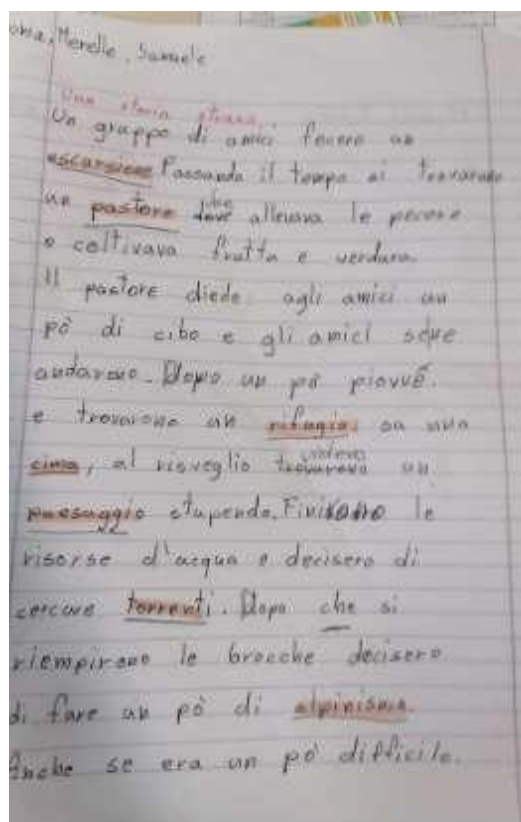 Merelle, Samuele
Una storia strana...
Un gruppo di amici fecero un
escursione Passando il tempo si trovarono
un pastore che dove allevava le pecore
e coltivava frutta e verdura.
Il pastore diede agli amici un
pò di cibo e gli amici se ne
andarono. Dopo un pò piovvé
e trovarono un rifugio su una
cima, al risveglio trovarono videro un
paesaggio stupendo. Finirono le
risorse d'acqua e decisero di
cercare torrenti. Dopo che si
riempirono le brocche decisero
di fare un pò di alpinismo.
Anche se era un pò difficile.